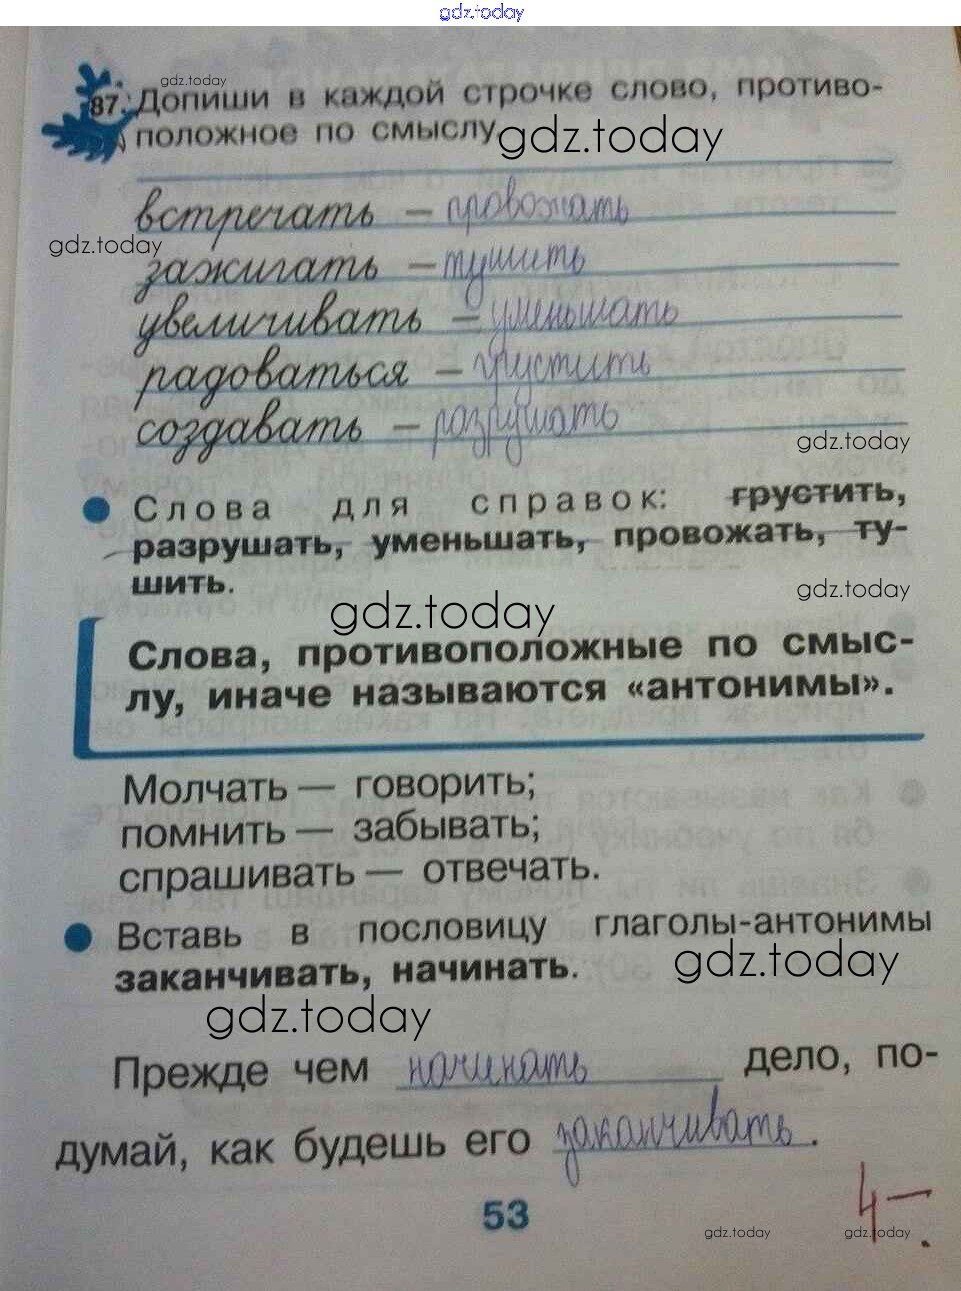 gdz.today
gdz.today
87. Допиши в каждой строчке слово, противо-
положное по смыслу.
gdz.today
встречать – провожать
gdz.today
зажигать – тушить
увеличивать – уменьшать
радоваться – грустить
создавать – разрушать
gdz.today
Слова для справок: грустить,
разрушать, уменьшать, провожать, ту-
шить.
gdz.today
gdz.today
Слова, противоположные по смыс-
лу, иначе называются «антонимы».
Молчать — говорить;
помнить — забывать;
спрашивать — отвечать.
Вставь в пословицу глаголы-антонимы
заканчивать, начинать.
gdz.today
gdz.today
Прежде чем начинать дело, по-
думай, как будешь его заканчивать.
53
4–
gdz.today
gdz.today